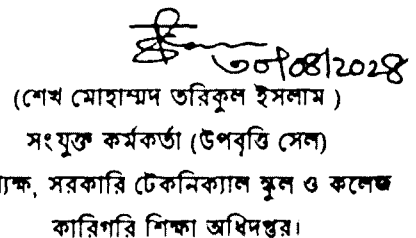 ৩০/০৪/২০২৪
(শেখ মোহাম্মদ তরিকুল ইসলাম )
সংযুক্ত কর্মকর্তা (উপবৃত্তি সেল)
্যক্ষ, সরকারি টেকনিক্যাল স্কুল ও কলেজ
কারিগরি শিক্ষা অধিদপ্তর।